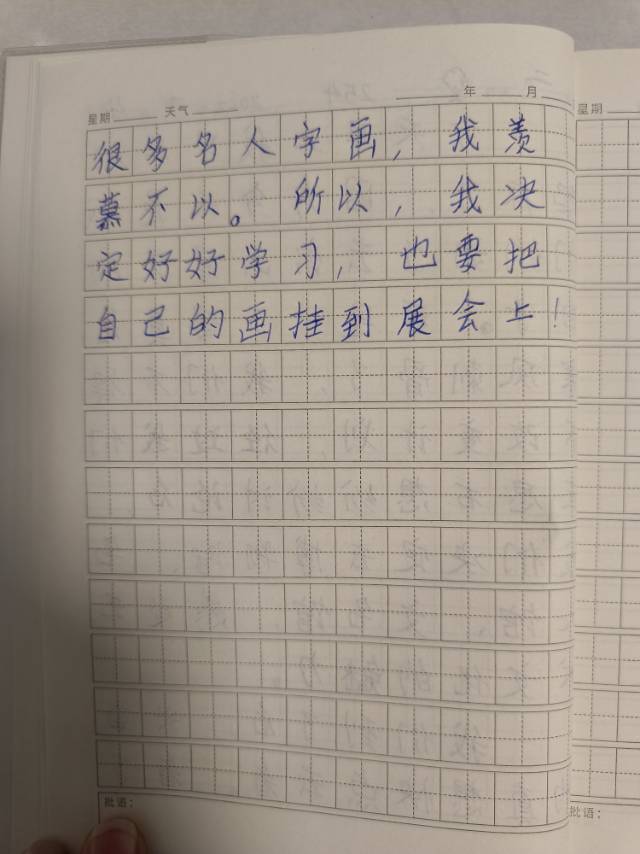 星期 天气 年 月 星期
很多名人字画，我羡
慕不以。所以，我决
定好好学习，也要把
自己的画挂到展会上！
批语： 批语：